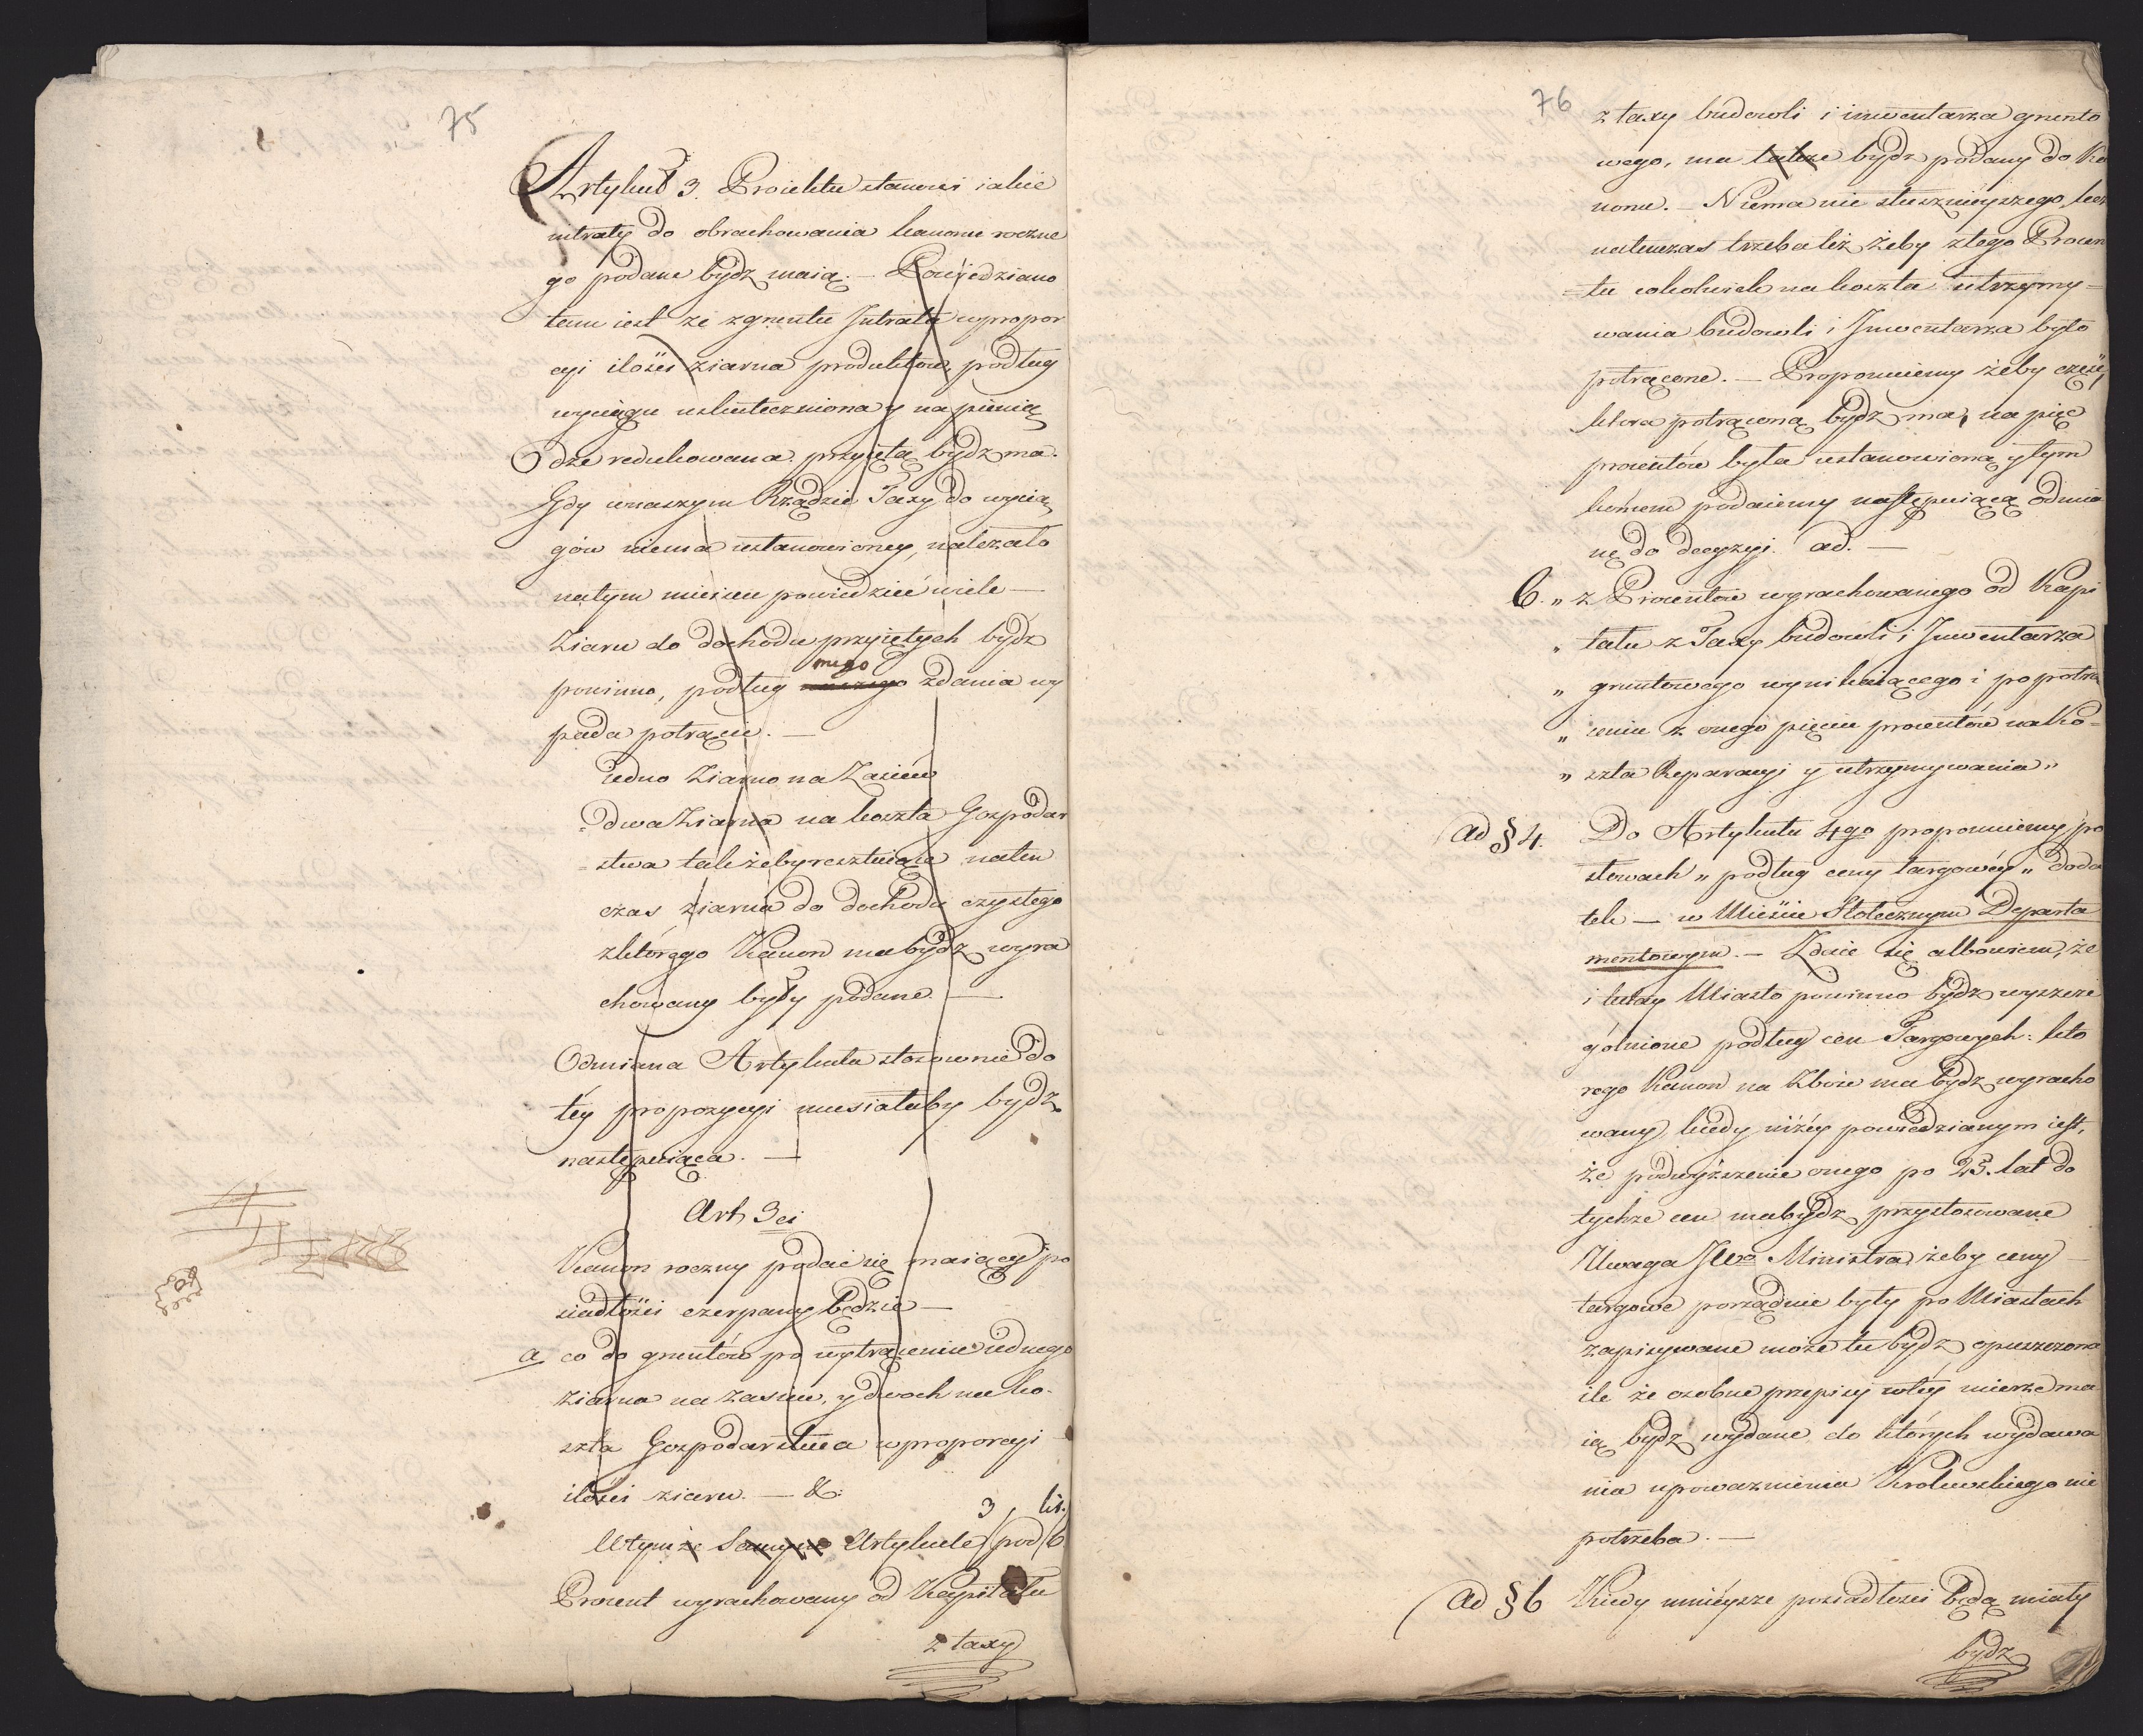 75
Artykuł 3. Proiektu stanowi iakie
intraty do obrachowania kanonu roczne
go podane bydź maią. — Powiedziano
temu iest że z gruntu Intrata w propor
cyi ilości ziarna produktów, podług
wyciągu uskuteczniona y na pienią
dze redukowana przyięta bydź ma.
Gdy w naszym Rządzie Taxy do wycią
gów niema ustanowioney, należało
na tym mieiscu powiedzieć wiele —
Ziarn do dochodu przyiętych bydź
powinno, podług mego zdania wy
pada potrącić. —
iedno Ziarno na Zasiew
dwa Ziarna na koszta Gospodar
=stwa tak żeby resztuiące naten
czas ziarna do dochodu czystego
z którego Kanon ma bydź wyra
chowany były podane. —
Odmiana Artykułu stosownie do
tey propozycyi musiałaby bydź
następuiąca. —
Art. 3ci
Kanon roczny podać się maiący po
siadłości czerpany będzie —
a co do gruntów po wytrąceniu iednego
ziarna na zasiew, y dwoch na ko-
szta Gospodarstwa w proporcyi
ilości ziarn. — &.
W tymże Samym Artykule 3, pod lit. b
Procent wyrachowany od Kapitału
z taxy
76
z taxy budowli i inwentarza grunto
wego, ma także bydź podany do Ka
nonu. — Niema nic słusznieyszego, lecz
natenczas trzeba też żeby z tego Procen
=tu cokolwiek na koszta utrzymy=
wania budowli i Inwentarza było
potrącone. — Proponuiemy żeby część,
ktora potrąconą bydź ma, na pięć
procentów była ustanowioną y tym
końcem podaiemy następuiącą odmia
nę do decyzyi. ad. —
b. „ z Procentów wyrachowanego od Kapi
„ tału z Taxy budowli i Inwentarza
„ gruntowego wynikaiącego i po potrą
„ ceniu z onego pięciu procentów na Ko=
„ szta Reparacyi y utrzymywania „
Ad § 4. Do Artykułu 4go proponuiemy po
słowach „ podług ceny targowéy „ doda
tek — w Mieście Stołecznym Departa
mentowym. — Zdaie się albowiem, że
i każdy Miasto powinno bydź wyszcze
gólnione podług cen Targowych: kto
rego Kanon na Zboże ma bydź wyracho
wany, kiedy niżéy powiedzianym iest,
że podwyższenie onego po 25. lat do
tychże cen ma bydź przystosowane
Uwaga JWo Ministra, żeby ceny
targowe porządnie były po Miastach
zapisywane może tu bydź opuszczona
ile że osobne przepisy w téy mierze ma
ią bydź wydane do których wydawa
nia upoważnienia Krolewskiego nie
potrzeba. —
Ad § 6 Kiedy mnieysze posiadłości będą miały
bydź